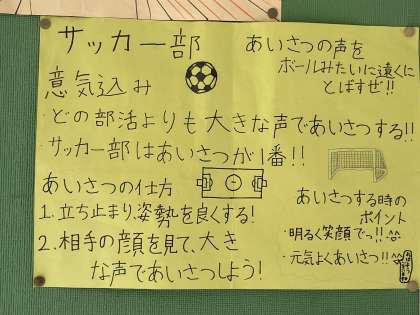 サッカー部
あいさつの声を
ボールみたいに遠くに
とばすぜ!!
意気込み
・どの部活よりも大きな声であいさつする!!
・サッカー部はあいさつが1番!!
あいさつの仕方
1.立ち止まり、姿勢を良くする!
2.相手の顔を見て、大き
な声であいさつしよう!
あいさつする時の
ポイント
・明るく笑顔でっ!!^^
・元気よくあいさつ!!^^